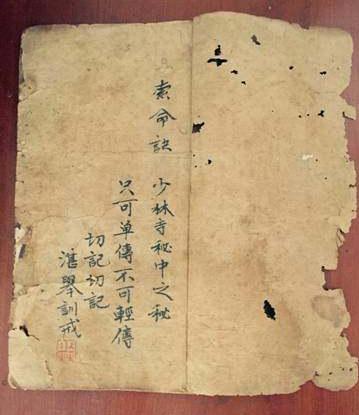 索命訣 少林寺秘中之秘
只可单傳不可輕傳
切記切記
湛舉訓戒